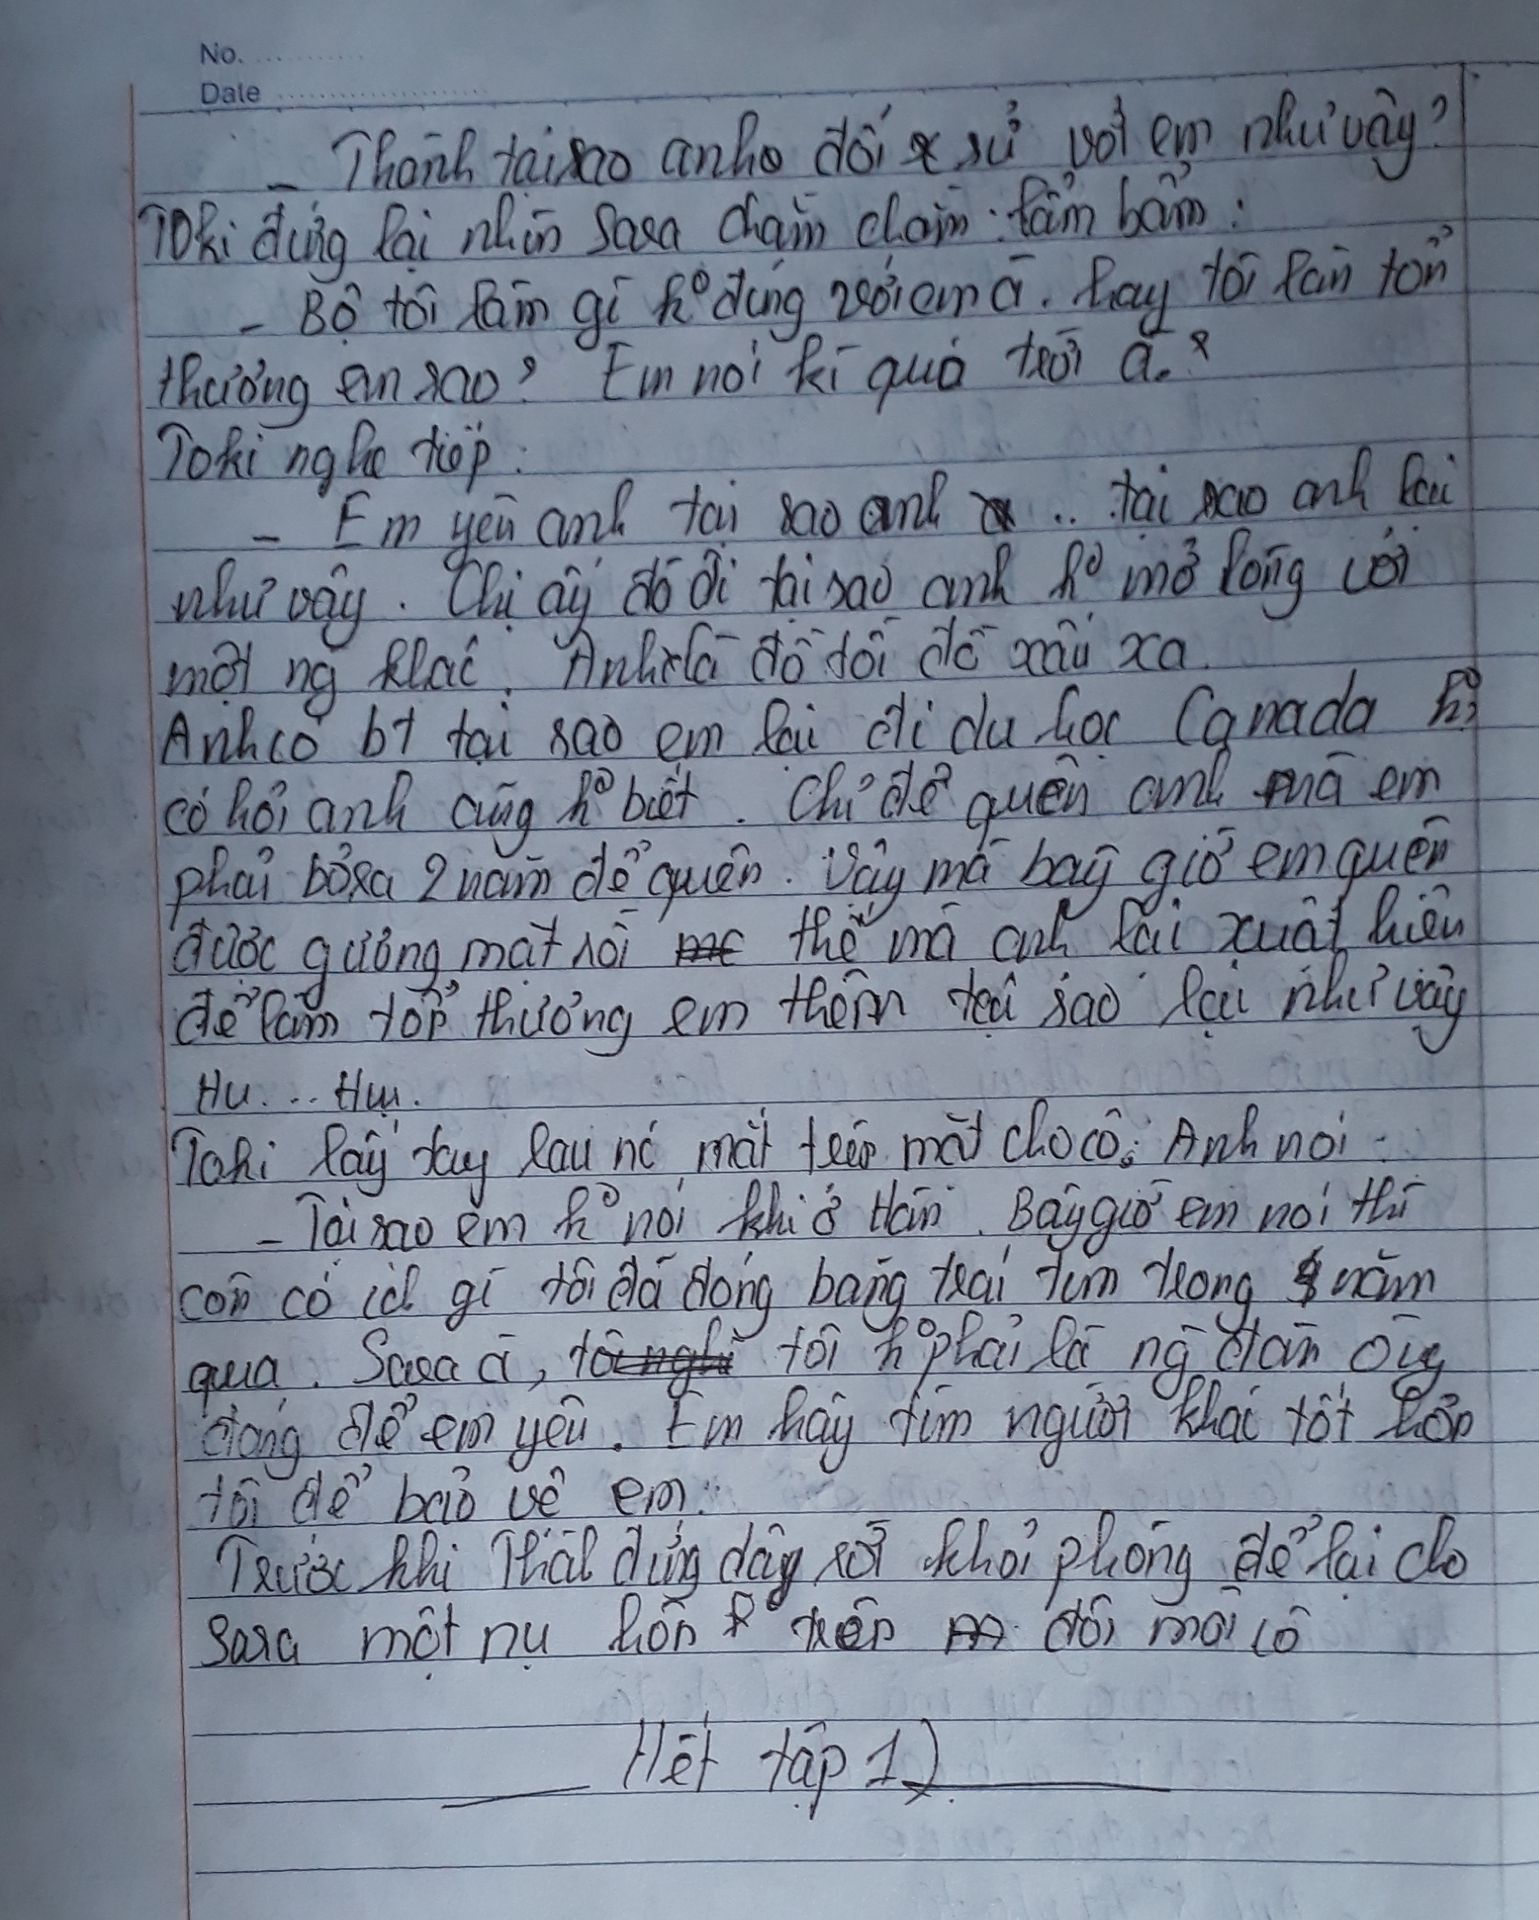 No. ............
Date ........................
- Thành tại sao anh đối sử với em như vậy?
Toki đứng lại nhìn Sara chằm chằm: lẩm bẩm:
- Bộ tôi làm gì ko đúng với em à. hay tôi làm tổn
thương em sao? Em nói kì quá trời à.?
Toki nghe tiếp:
- Em yêu anh tại sao anh .. tại sao anh lại
như vậy. Chị ấy đã đi tại sao anh ko mở lòng với
một ng khác. Anh là đồ tồi đồ xấu xa.
Anh có bt tại sao em lại đi du học Canada ko
có hỏi anh cũng ko biết. Chỉ để quên anh mà em
phải bỏ ra 2 năm để quên. Vậy mà bây giờ em quên
được gương mặt rồi thế mà anh lại xuất hiện
để làm tổn thương em thêm tại sao lại như vậy
Hu... Hu.
Toki lấy tay lau nc mắt trên mặt cho cô. Anh nói:
- Tại sao em ko nói khi ở Hàn. Bây giờ em nói thì
còn có ích gì tôi đã đóng băng trái tim trong năm
qua. Sara à, tôi ko phải là ng đàn ông
đáng để em yêu. Em hãy tìm người khác tốt hơn
tôi để bảo vệ em.
Trước khi Thành đứng dậy rời khỏi phòng để lại cho
Sara một nụ hôn trên đôi môi cô
Hết tập 1)